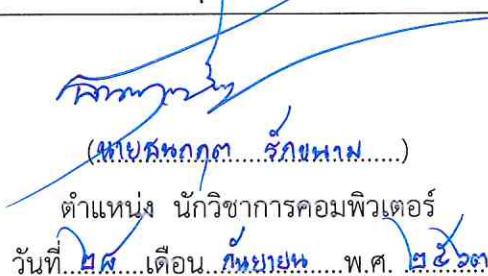 (นายธนกฤต รักขนาม)
ตำแหน่ง นักวิชาการคอมพิวเตอร์
วันที่ ๒๘ เดือน กันยายน พ.ศ. ๒๕๖๓